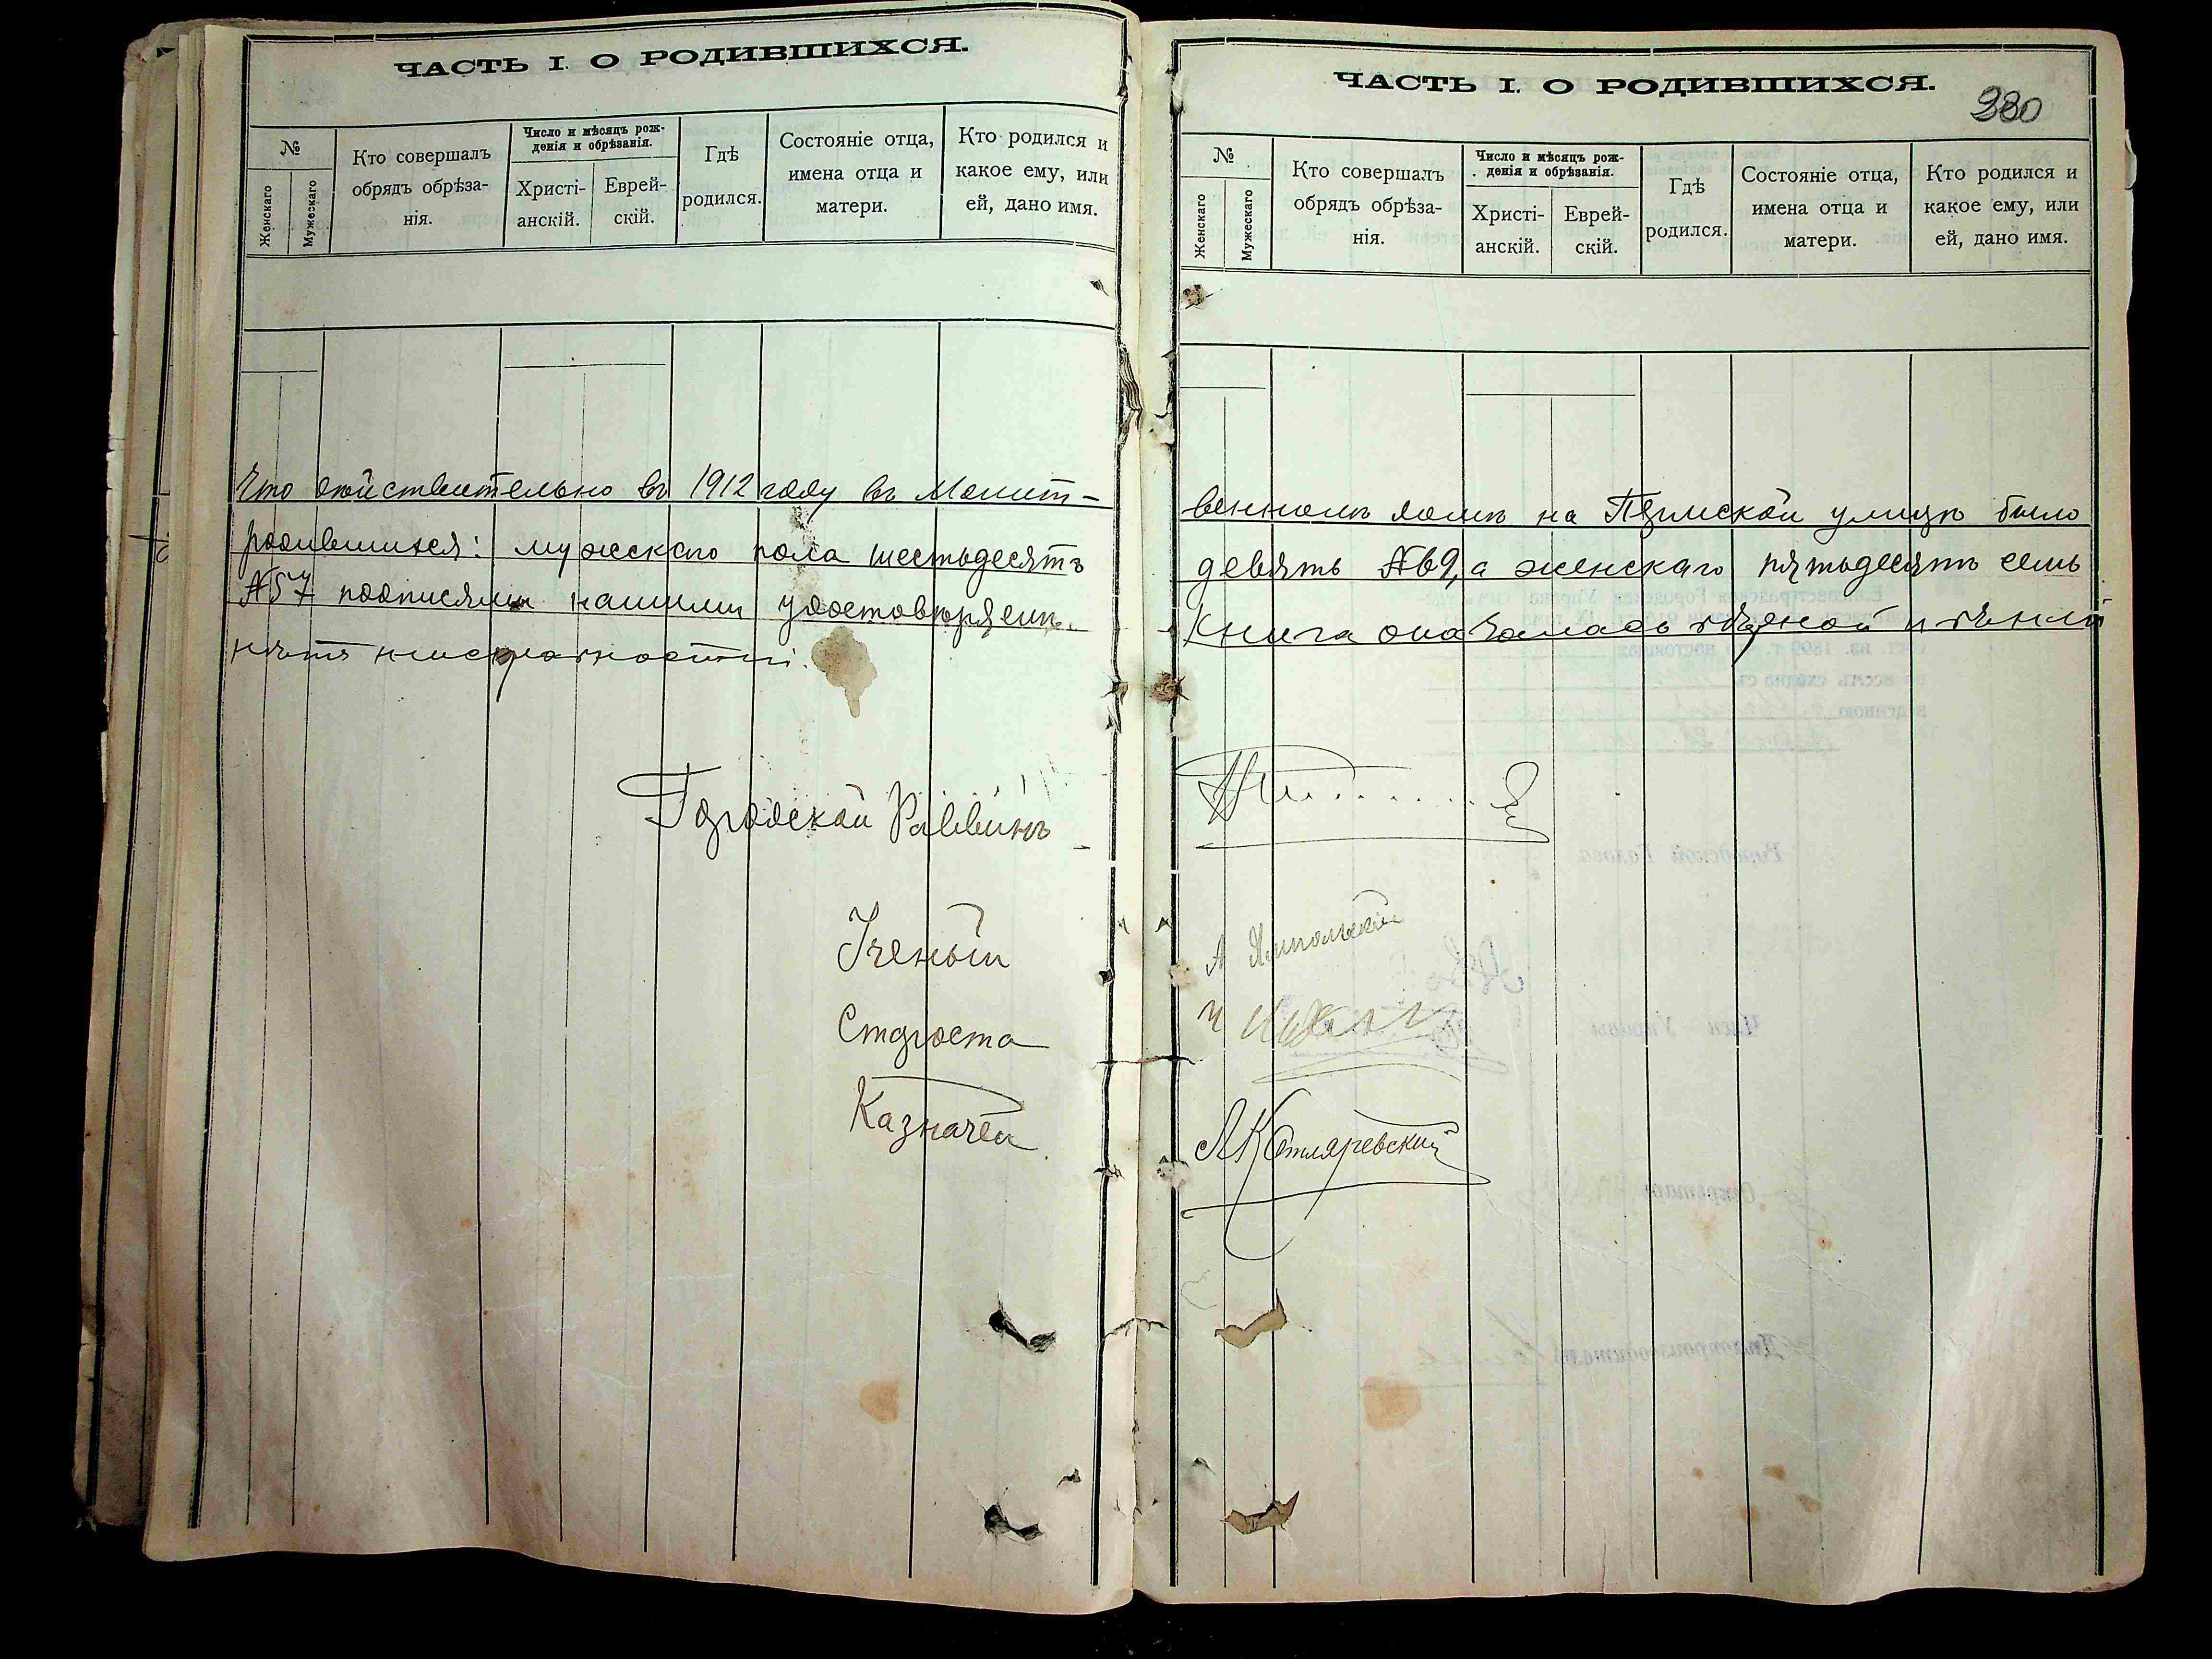 ЧАСТЬ I. О РОДИВШИХСЯ.
№
Женскаго
Мужескаго
Кто совершалъ
обрядъ обрѣза-
нія.
Число и мѣсяцъ рож-
денія и обрѣзанія.
Христі-
анскій.
Еврей-
скій.
Гдѣ
родился.
Состояніе отца,
имена отца и
матери.
Кто родился и
какое ему, или
ей, дано имя.
Что действительно въ 1912 году въ Молит-
родившихся: мужескаго пола шестьдесятъ
№57 подписями нашими удостовѣряемъ.
нѣтъ
Городской Раввинъ
Ученый
Староста
Казначей
ЧАСТЬ I. О РОДИВШИХСЯ.
230
№
Женскаго
Мужескаго
Кто совершалъ
обрядъ обрѣза-
нія.
Число и мѣсяцъ рож-
денія и обрѣзанія.
Христі-
анскій.
Еврей-
скій.
Гдѣ
родился.
Состояніе отца,
имена отца и
матери.
Кто родился и
какое ему, или
ей, дано имя.
венномъ домѣ на Пермской улицѣ было
девять №69, а женскаго пятьдесятъ семь
Книга
А Ямпольскій
Котляревский